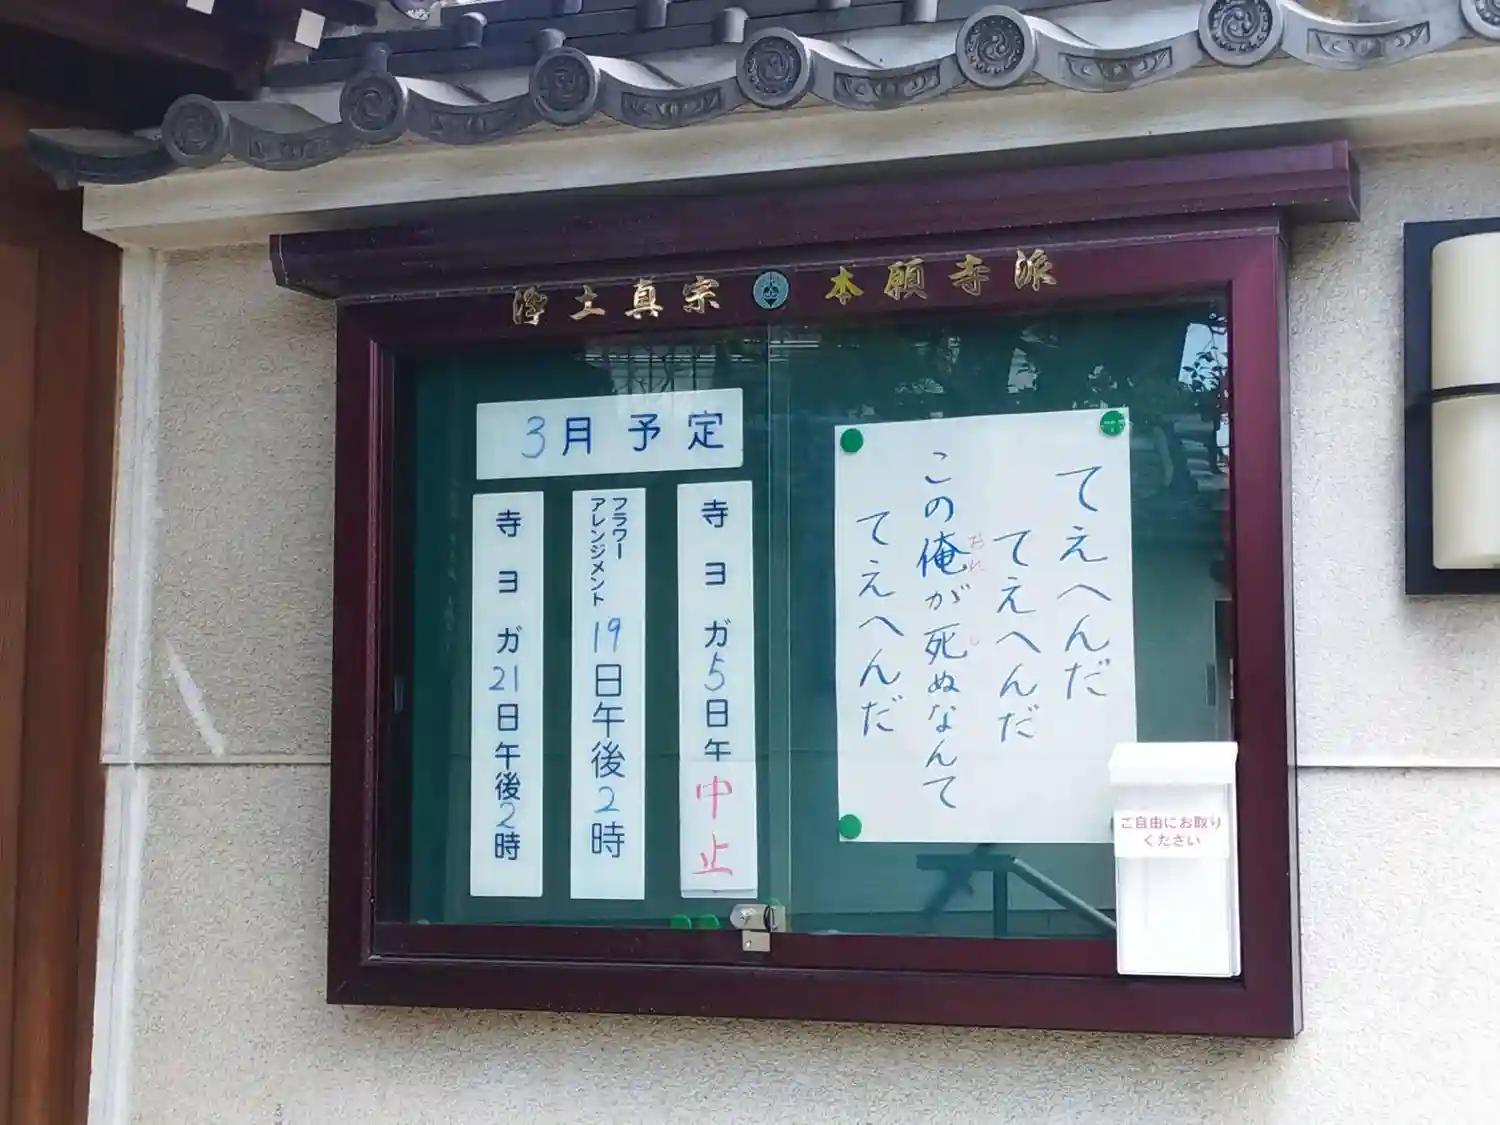 浄土真宗 本願寺派
3月 予定
寺ヨガ5日午中止
フラワー
アレンジメント 19日午後2時
寺ヨガ21日午後2時
てえへんだ
てえへんだ
この俺が死ぬなんて
おれ
し
てえへんだ
ご自由にお取り
ください